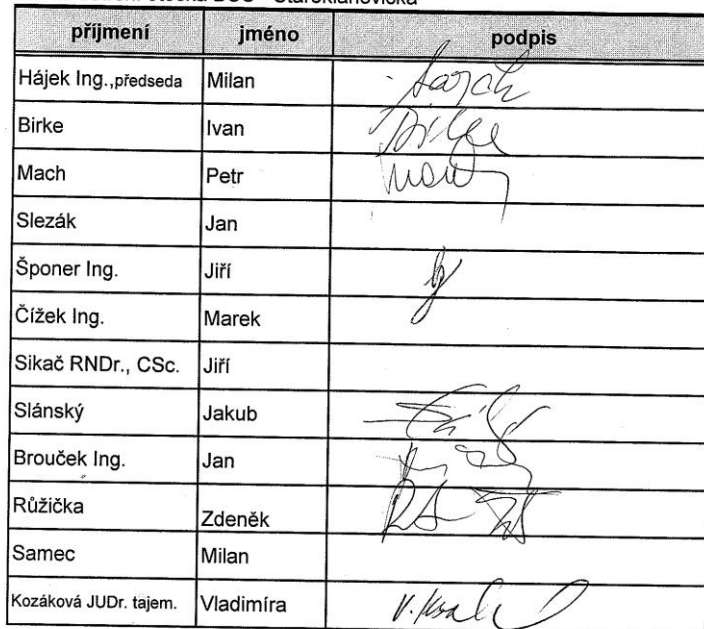 příjmení jméno podpis
Hájek Ing.,předseda Milan
Birke Ivan
Mach Petr
Slezák Jan
Šponer Ing. Jiří
Čížek Ing. Marek
Sikač RNDr., CSc. Jiří
Slánský Jakub
Brouček Ing. Jan
Růžička Zdeněk
Samec Milan
Kozáková JUDr. tajem. Vladimíra